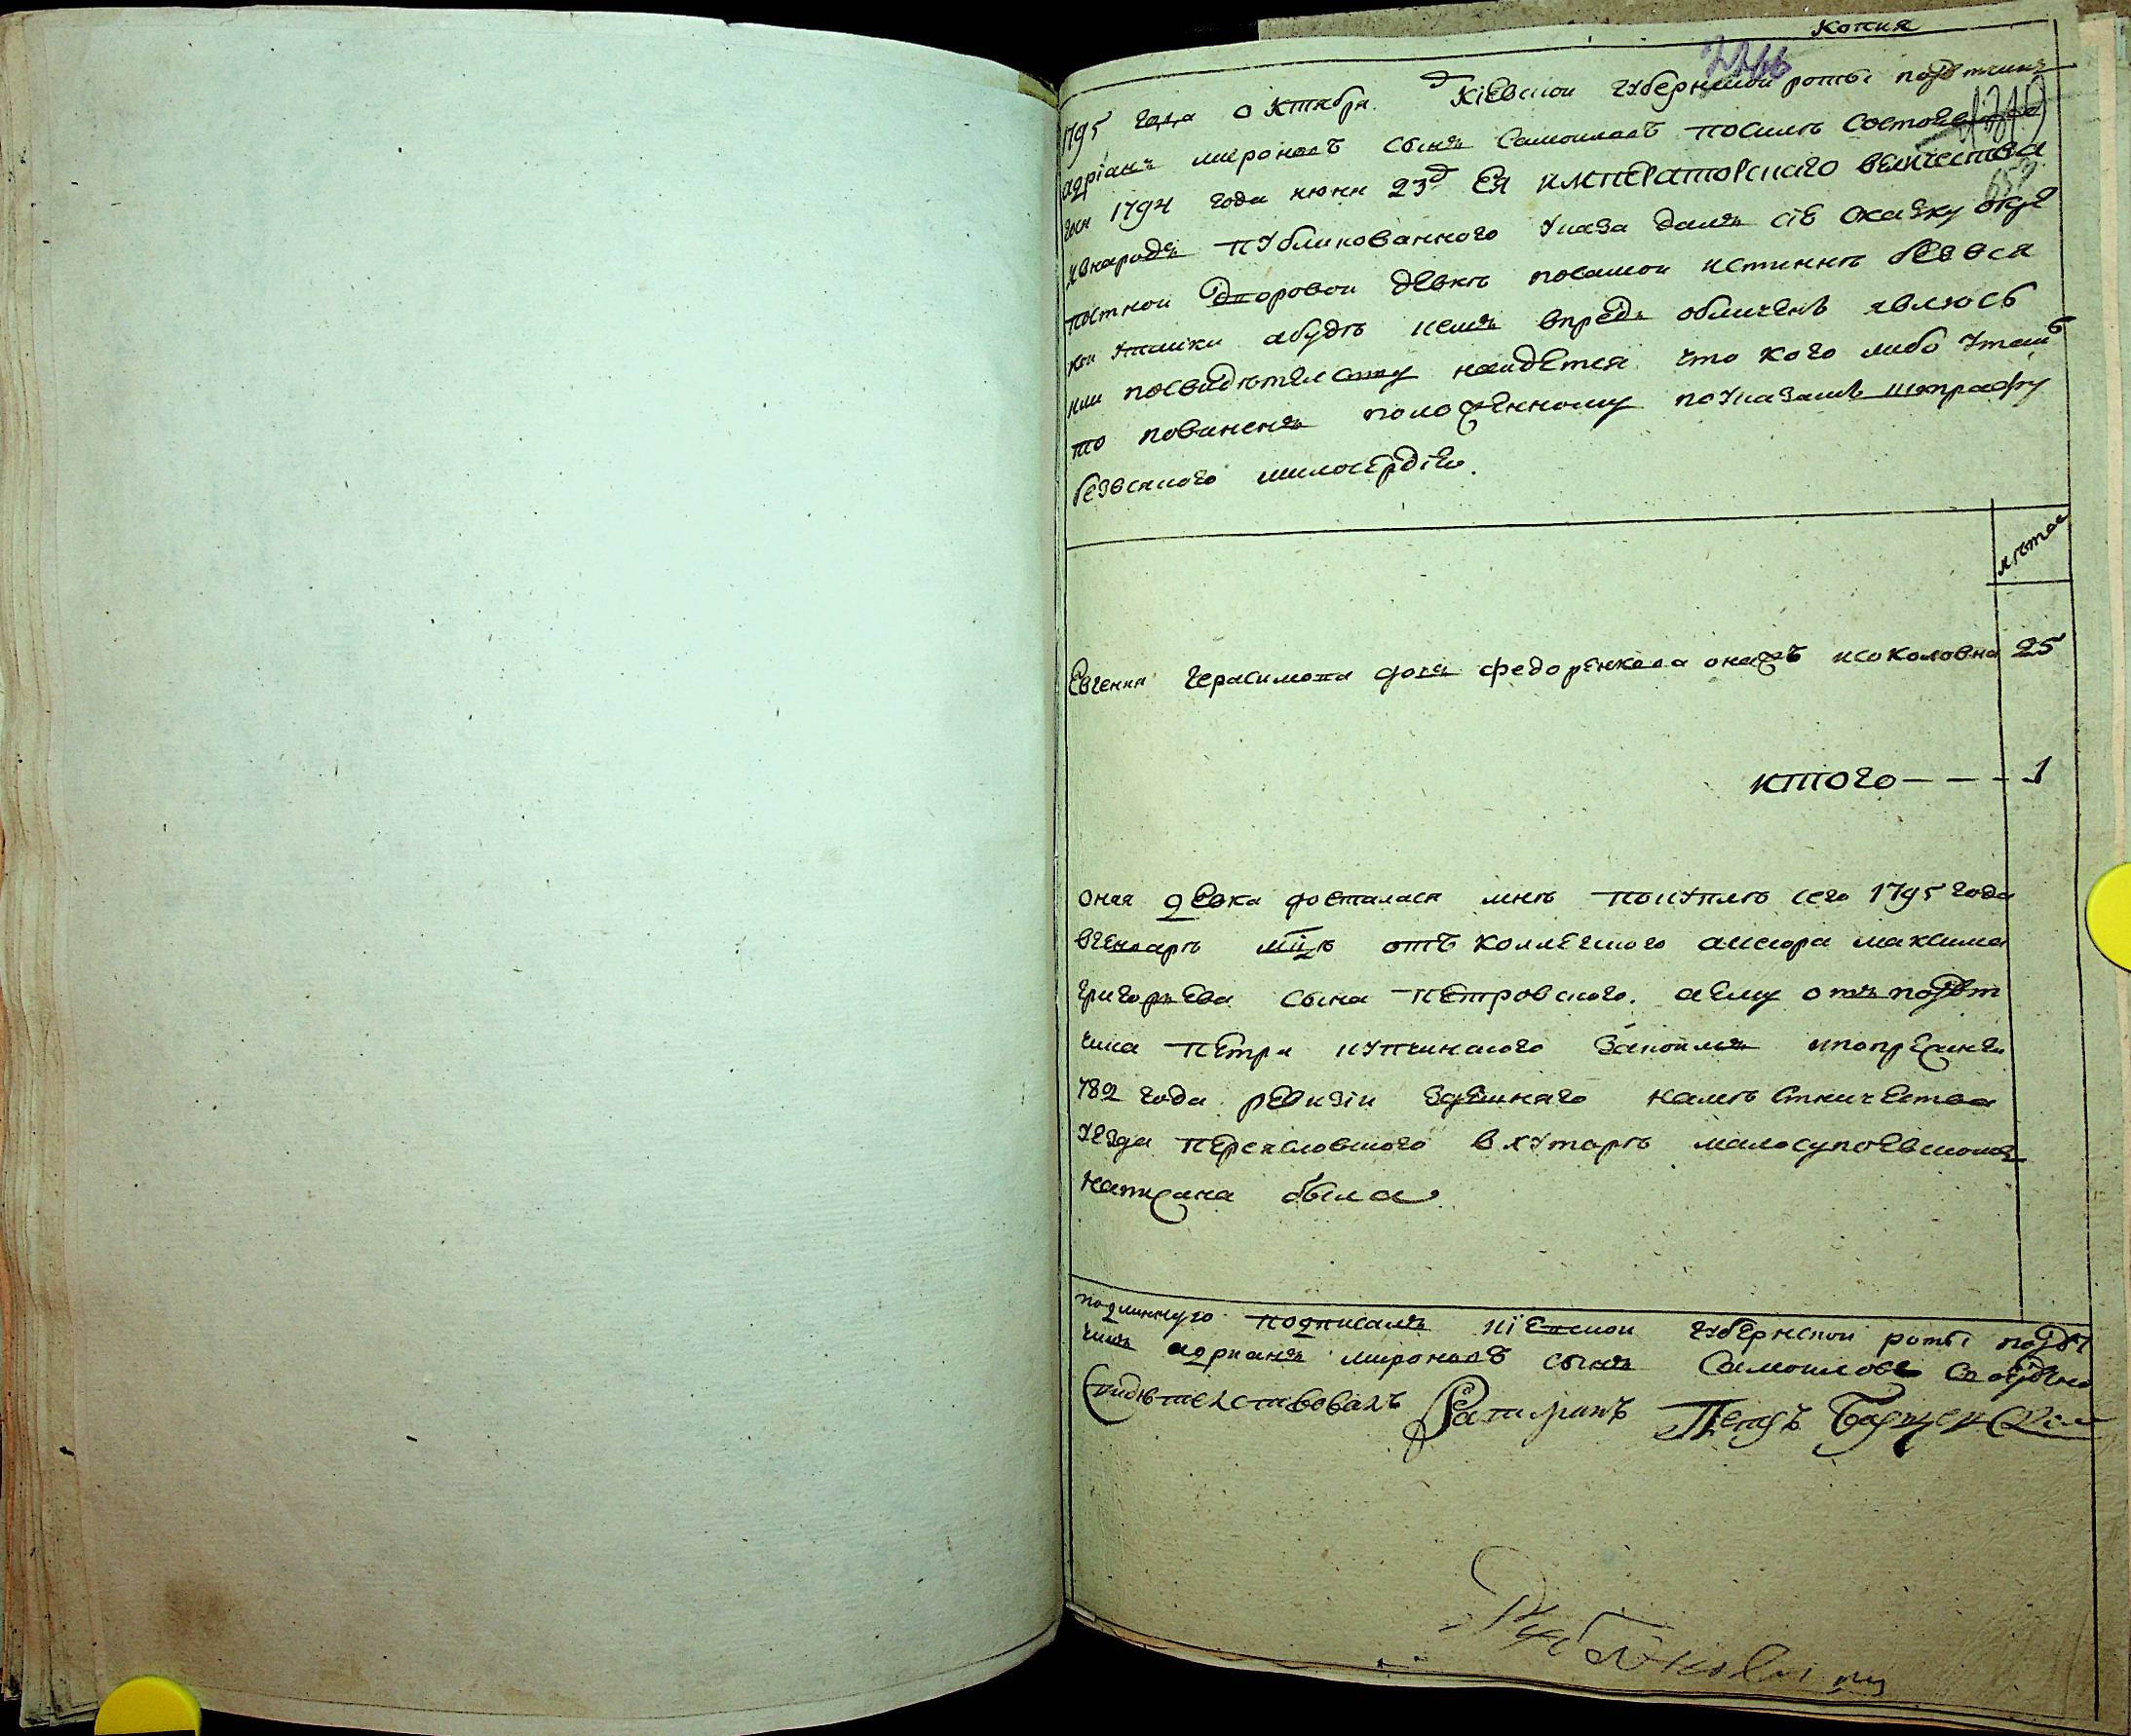 копия
1795 года октября д Кіевской губернской роты порутчикъ
адріанъ мироновъ сынъ Самоиловъ посилѣ состоев
гося 1794 года июня 23д Ея императорскаго величества
ивнародъ публикованного указа далъ сіе скаску окре
постной дворовой девкѣ посамой истиннѣ безвся
кой утайки абудѣ кемъ впредь обличенъ явлюсь
или посвидѣтелству наидется что кого либо утаилъ
то повиненъ положенному поуказамъ штрафу
безвсякого милосердія.
лѣта
Евгения Герасимова дочь федоренкова онажъ исоколовна 25
итого - - - 1
оная девка досталася мнѣ покупкѣ сего 1795 года
вгенварѣ мцѣ отъ коллегского асесора максима
григорьева сына петровского. аему отъ порут
чика петра купчинского ипопрежней
782 года ревизіи здешняго намѣстничества
уезда переясловского вхуторѣ малосупоевскомъ
написана была
подлинную подписалъ кіевской губернской роты поруч
чикъ адрианъ мироновъ сынъ Самоиловъ
Свидѣтелствовалъ Петръ